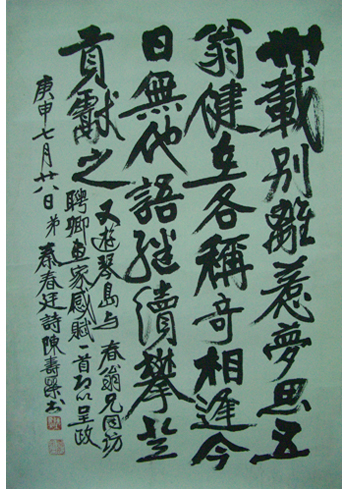 卅載別離惹夢思五
翁健在各稱奇相逢今
日無他語繼續攀登
貢獻之
又遊琴島与春翁兄同訪
聘卿畫家感賦首即以呈政
庚申七月廿八日弟秦春廷詩陳壽榮书